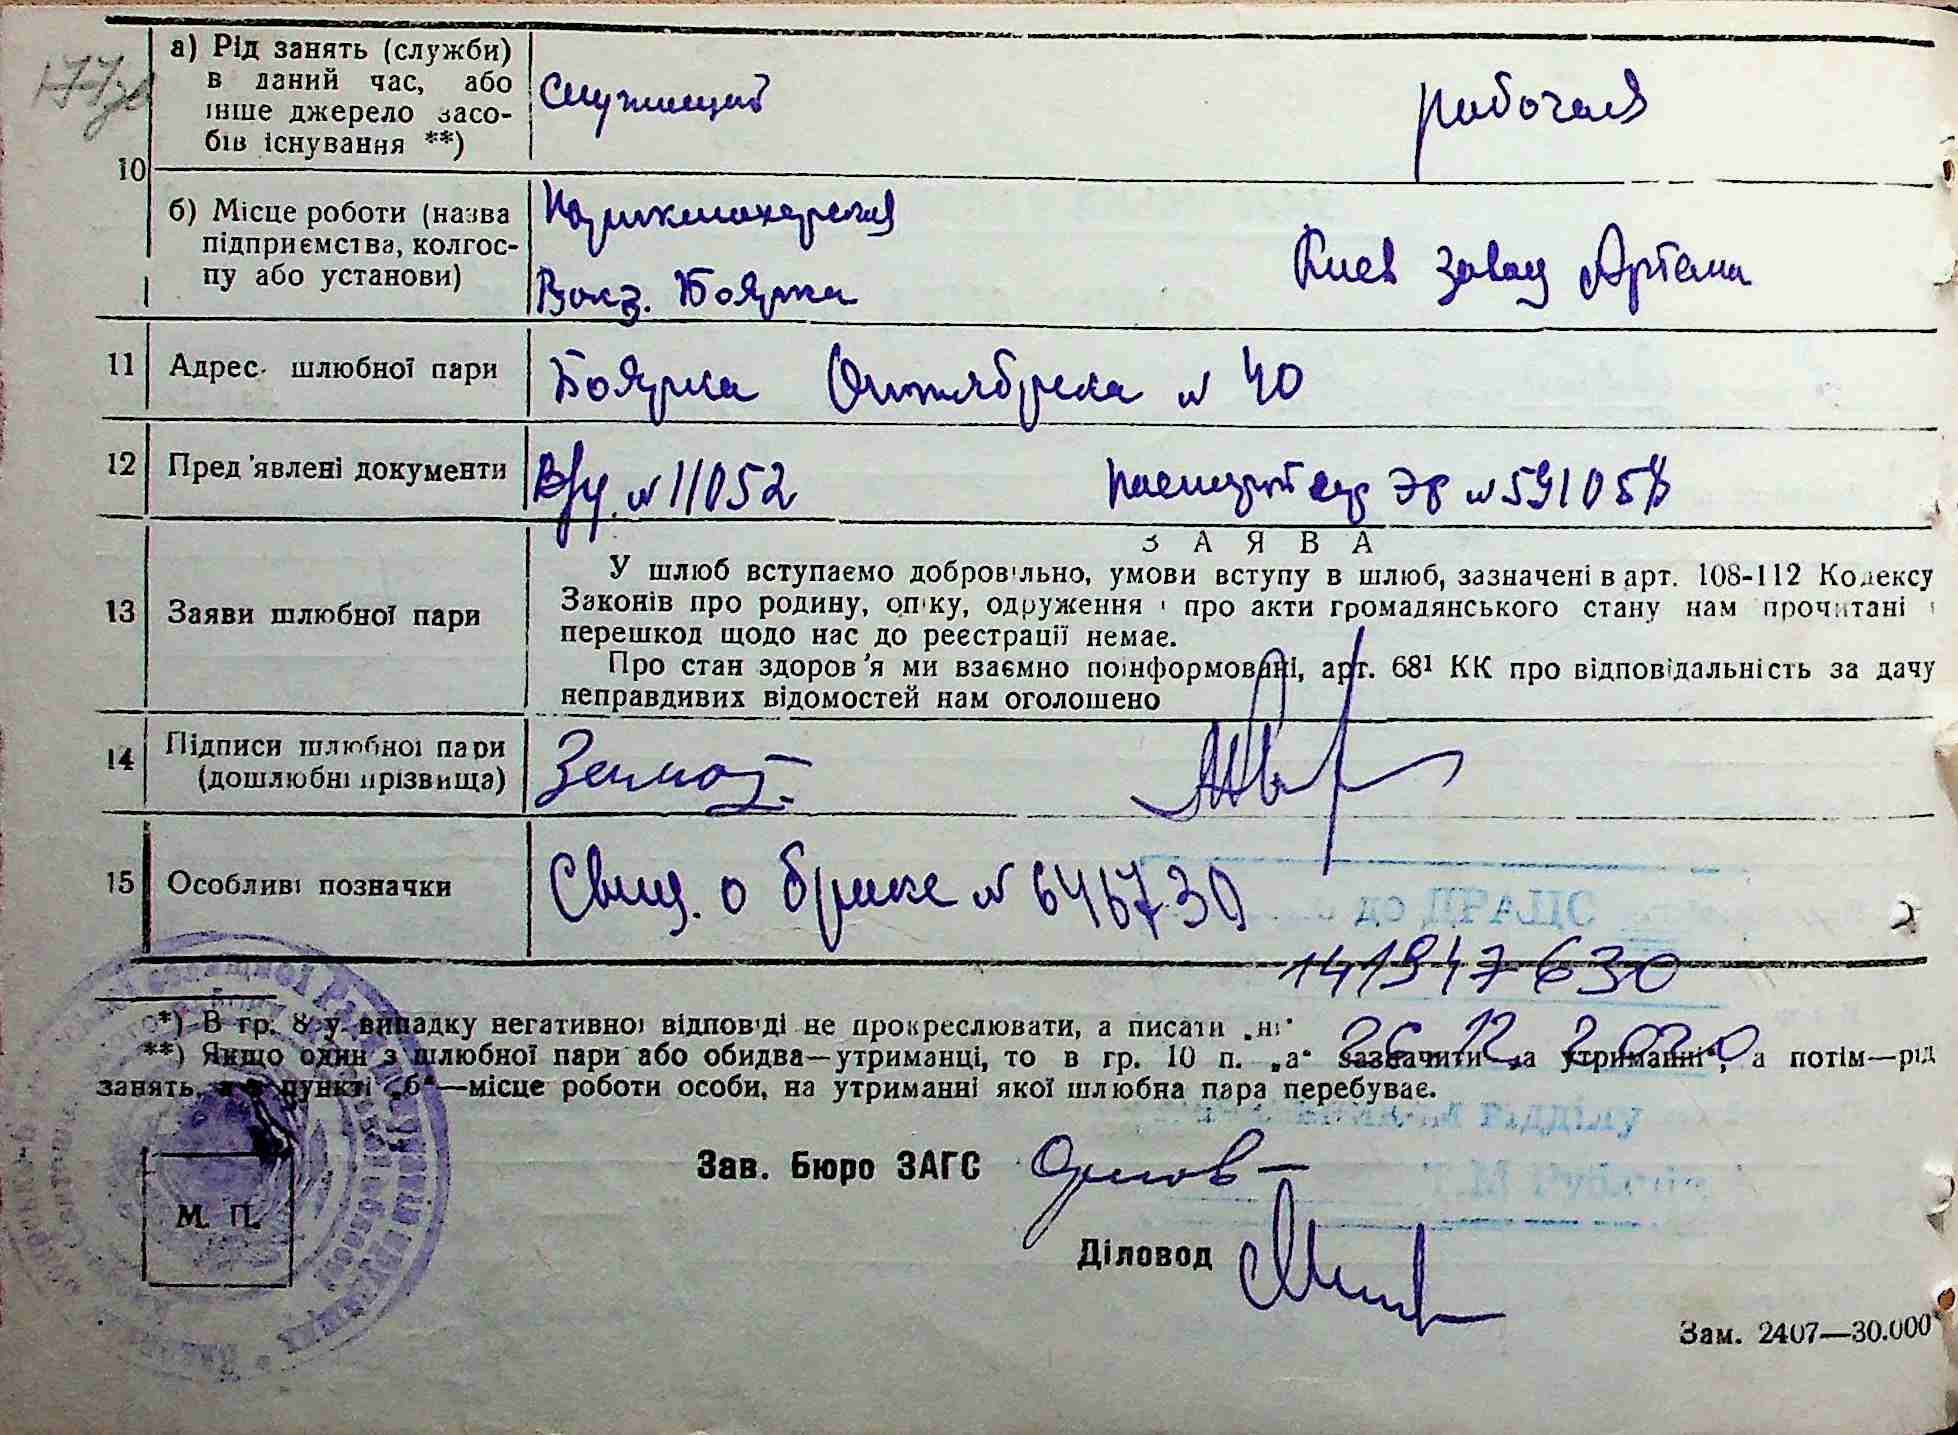 177
а) Рід занять (служби)
в даний час, або
інше джерело засо-
бів існування **)
Служащий
рабочая
10
б) Місце роботи (назва
підприємства, колгос-
пу або установи)
Парикмахерская
Вокз. Боярка
Киев завод Артема
11
Адрес шлюбної пари
Боярка Октябрьска № 40
12
Пред'явлені документи
№ 11052
№ 591058
13
Заяви шлюбної пари
ЗАЯВА
У шлюб вступаємо добровільно, умови вступу в шлюб, зазначені в арт. 108-112 Кодексу
Законів про родину, опіку, одруження і про акти громадянського стану нам прочитані і
перешкод щодо нас до реєстрації немає.
Про стан здоров'я ми взаємно поінформовані, арт. 68¹ КК про відповідальність за дачу
неправдивих відомостей нам оголошено
14
Підписи шлюбної пари
(дошлюбні прізвища)
15
Особливі позначки
Свид. о браке № 646730
до ДРАЦС
141947630
*) В гр. 8 у випадку негативної відповіді не прокреслювати, а писати „ні"
26.12.2020
**) Якщо один з шлюбної пари або обидва—утриманці, то в гр. 10 п. „а" зазначити „на утриманні", а потім—рід
занять, а в пункті „б"—місце роботи особи, на утриманні якої шлюбна пара перебуває.
відділу
Зав. Бюро ЗАГС
М. П.
Діловод
Зам. 2407—30.000